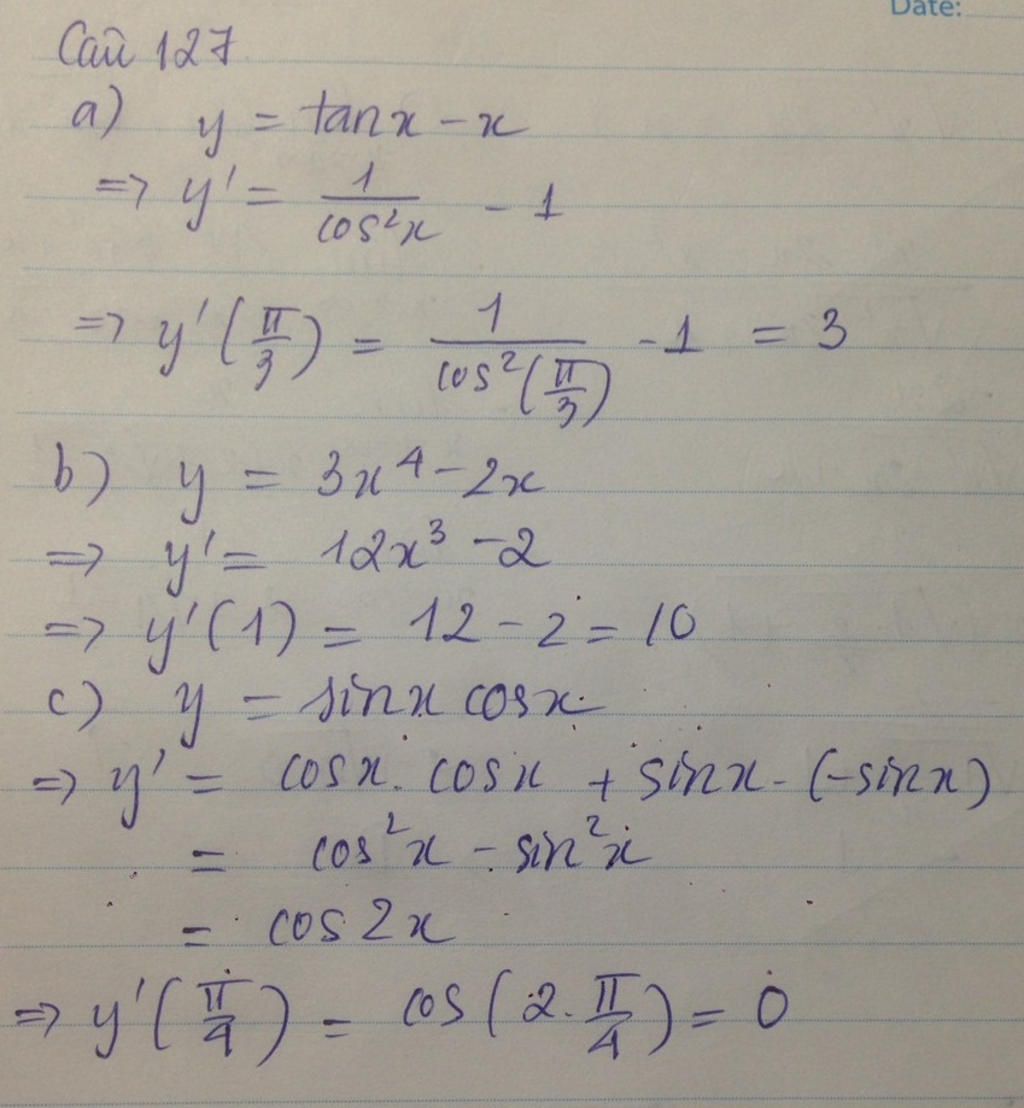 Date:
Câu 127
a) y = tanx - x
=> y' = 1/cos²x - 1
=> y'(π/3) = 1/cos²(π/3) - 1 = 3
b) y = 3x⁴ - 2x
=> y' = 12x³ - 2
=> y'(1) = 12 - 2 = 10
c) y = sinx cosx
=> y' = cosx. cosx + sinx. (-sinx)
= cos²x - sin²x
= cos2x
=> y'(π/4) = cos(2.π/4) = 0